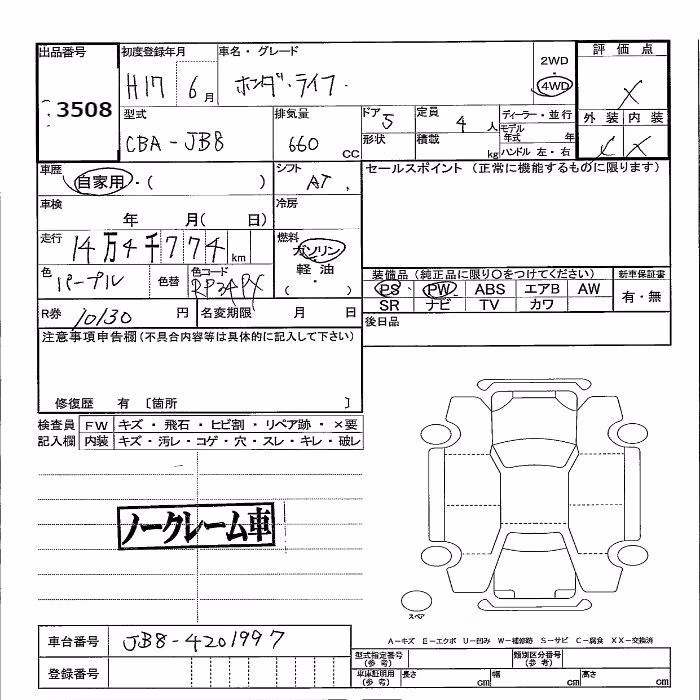 出品番号 初度登録年月 車名・グレード 2WD 評価点
3508 H17 6月 ホンダ・ライフ 4WD X
型式 排気量 ドア 5 定員 4人 ディーラー・並行 外装 内装
CBA-JB8 660 CC 形状 積載 kg モデル年式 年
ハンドル 左・右
車歴 自家用・( ) シフト AT セールスポイント (正常に機能するものに限ります)
車検 年 月( 日) 冷房
走行 14万4千774km 燃料 ガソリン
軽油
( ・ )
色 パープル 色替 色コード RP34PX
装備品(純正品に限り〇をつけてください) 新車保証書
PS PW ABS エアB AW 有・無
SR ナビ TV カワ
R券 10130 円 名変期限 月 日 後日品
注意事項申告欄(不具合内容等は具体的に記入して下さい)
修復歴 有 〔箇所 〕
検査員 FW キズ・飛石・ヒビ割・リペア跡・×要
記入欄 内装 キズ・汚レ・コゲ・穴・スレ・キレ・破レ
ノークレーム車
スペア
A-キズ E-エクボ U-凹み W-補修跡 S-サビ C-腐食 XX-交換済
車台番号 JB8-4201997
登録番号
型式指定番号(参考) 類別区分番号(参考)
車庫証明用(参考) 長さ cm 幅 cm 高さ cm